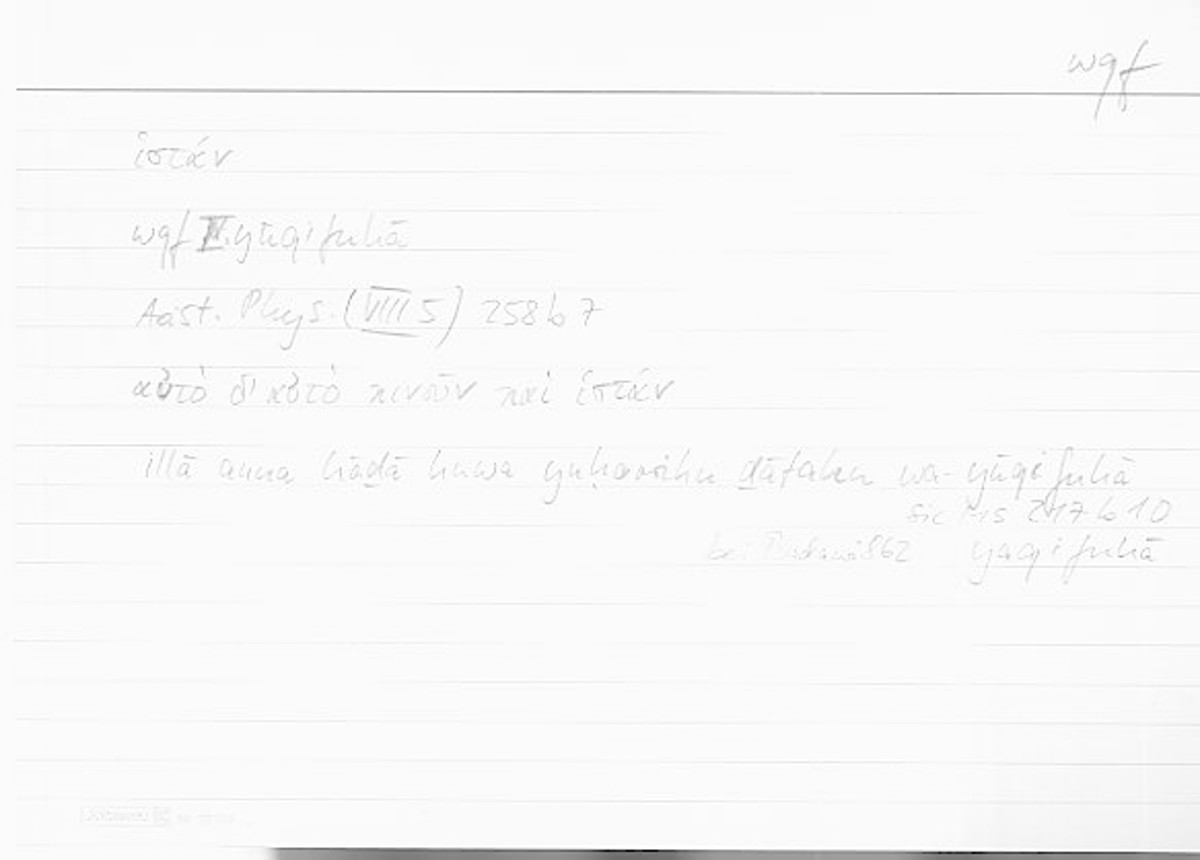 wqf
ἱστάν
wqf IV. yūqifuhā
Arist. Phys. (VIII 5) 258 b 7
αὐτὸ δι' αὐτὸ κινοῦν καὶ ἱστάν
illā anna hāḏā huwa yuḥarrihu ḏātahu wa-yūqifuhā
sic Ms 217 b 10
bei Badawi 862 yaqifuhā